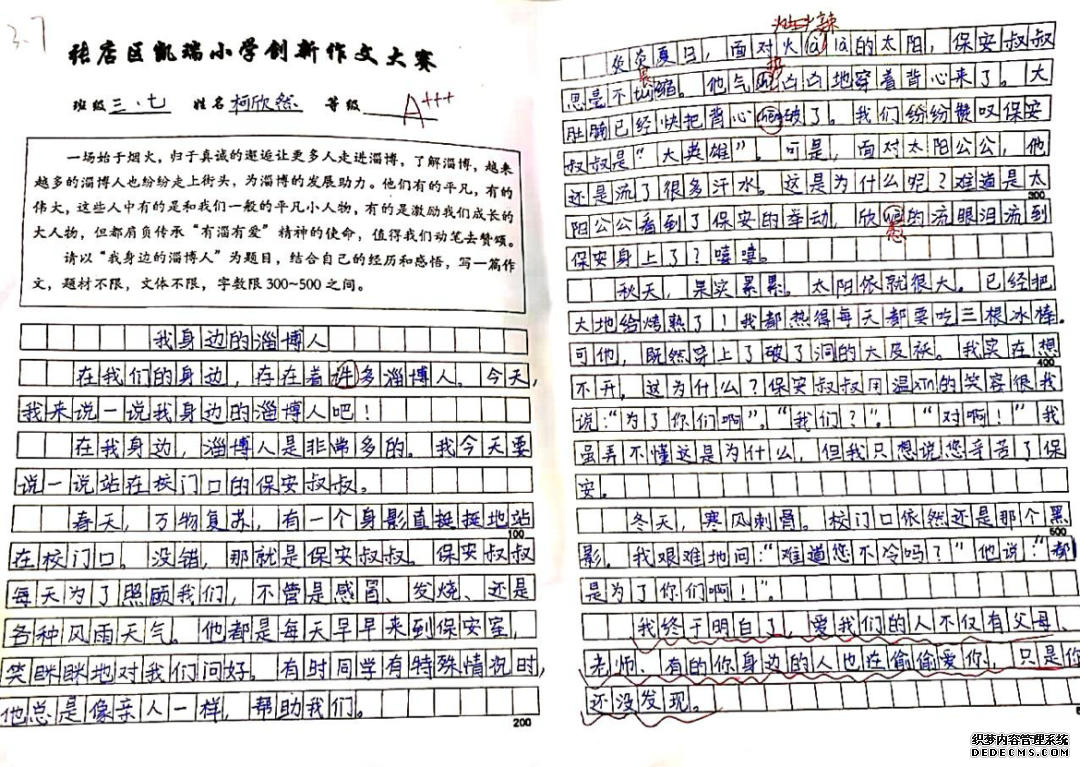 3.7
张店区凯瑞小学创新作文大赛
班级 三.七 姓名 柯欣然 等级 A+++
一场始于烟火，归于真诚的邂逅让更多人走进淄博，了解淄博，越来
越多的淄博人也纷纷走上街头，为淄博的发展助力。他们有的平凡，有的
伟大，这些人中有的是和我们一般的平凡小人物，有的是激励我们成长的
大人物，但都肩负传承“有淄有爱”精神的使命，值得我们动笔去赞颂。
请以“我身边的淄博人”为题目，结合自己的经历和感悟，写一篇作
文，题材不限，文体不限，字数限300~500之间。
我身边的淄博人
在我们的身边，存在着许多淄博人。今天，
我来说一说我身边的淄博人吧！
在我身边，淄博人是非常多的。我今天要
说一说站在校门口的保安叔叔。
春天，万物复苏，有一个身影直挺挺地站
100
在校门口。没错，那就是保安叔叔。保安叔叔
每天为了照顾我们，不管是感冒、发烧、还是
各种风雨天气。他都是每天早早来到保安室，
笑眯眯地对我们问好。有时同学有特殊情况时，
他总是像亲人一样，帮助我们。
200
火辣
炎炎夏日，面对火là là的太阳，保安叔叔
畏 热
思毫不惧缩。他气凶凶地穿着背心来了。大
肚腩已经快把背心破了。我们纷纷赞叹保安
叔叔是“大英雄”。可是，面对太阳公公，他
还是流了很多汗水。这是为什么呢？难道是太
300
阳公公看到了保安的举动，欣的流眼泪流到
慰
保安身上了？嘻嘻。
秋天，果实累累。太阳依就很大。已经把
大地给烤熟了！我都热得每天都要吃三根冰棒。
可他，既然穿上了破了洞的大皮袄。我实在想
400
不开，这为什么？保安叔叔用温xīn的笑容很我
说：“为了你们啊”。“我们？”。“对啊！”我
虽弄不懂这是为什么，但我只想说您辛苦了保
安。
冬天，寒风刺骨。校门口依然还是那个黑
500
影。我艰难地问：“难道您不冷吗？”他说：“都
是为了你们啊！”。
我终于明白了，爱我们的人不仅有父母、
老师、有的你身边的人也在偷偷爱你，只是你
还没发现。
织梦内容管理系统
DEDECMS.COM